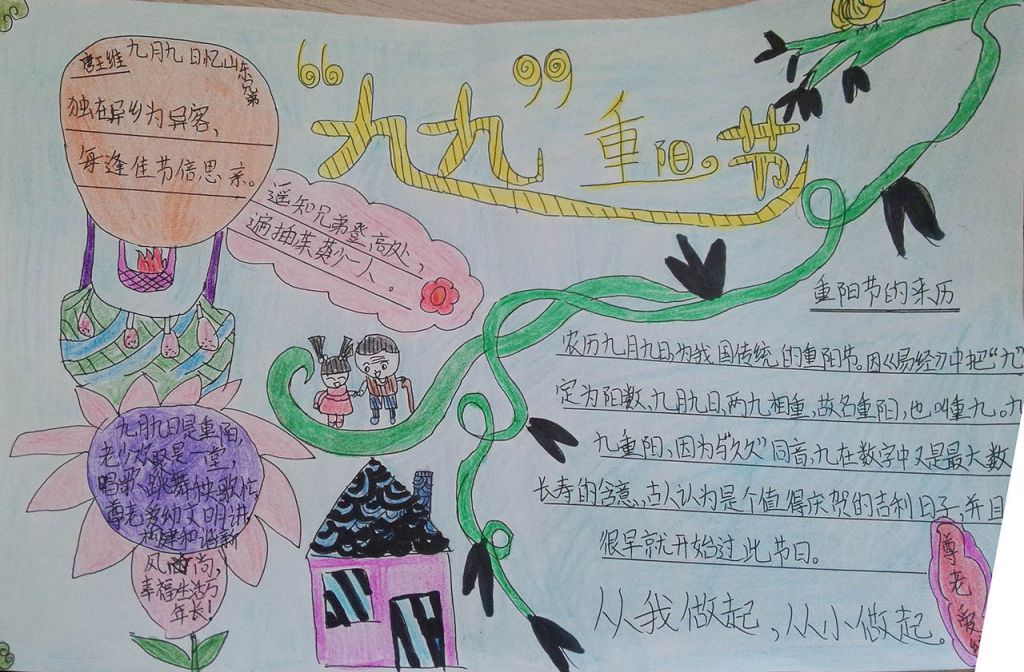 “九九”重阳节
唐王维 九月九日忆山东兄弟
独在异乡为异客，
每逢佳节倍思亲。
遥知兄弟登高处，
遍插茱萸少一人。
重阳节的来历
农历九月九日，为我国传统的重阳节。因《易经》中把“九”
定为阳数，九月九日，两九相重，故名重阳，也叫重九。九
九重阳，因为与“久久”同音，九在数字中又是最大数
长寿的含意，古人认为是个值得庆贺的吉利日子，并且
很早就开始过此节日。
从我做起，从小做起。
尊老爱
九月九日是重阳，
老少欢聚是一堂，
唱歌跳舞
尊老爱幼文明讲，
和谐新
风尚，
幸福生活
年长！